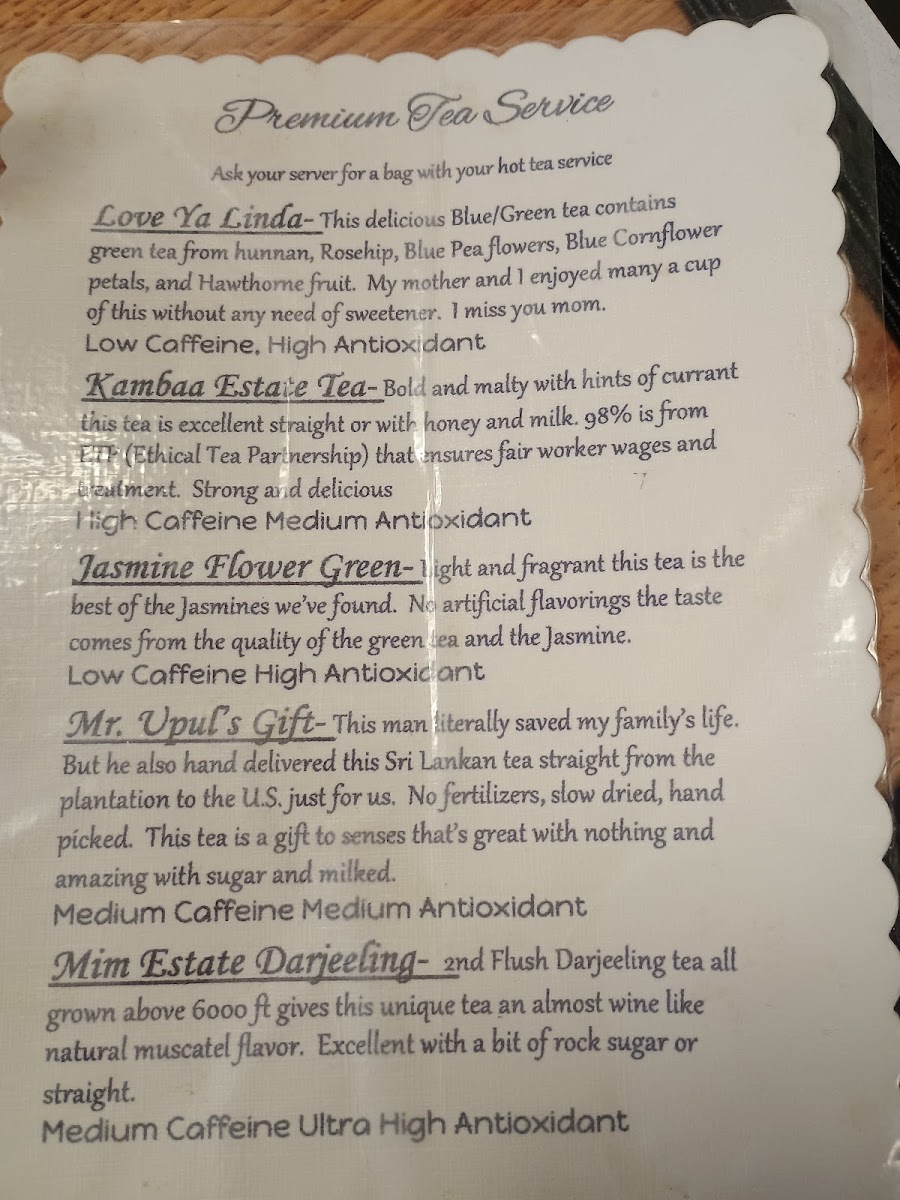 Premium Tea Service
Ask your server for a bag with your hot tea service
Love Ya Linda- This delicious Blue/Green tea contains
green tea from hunnan, Rosehip, Blue Pea flowers, Blue Cornflower
petals, and Hawthorne fruit. My mother and I enjoyed many a cup
of this without any need of sweetener. I miss you mom.
Low Caffeine, High Antioxidant
Kambaa Estate Tea- Bold and malty with hints of currant
this tea is excellent straight or with honey and milk. 98% is from
ETP (Ethical Tea Partnership) that ensures fair worker wages and
treatment. Strong and delicious
High Caffeine Medium Antioxidant
Jasmine Flower Green- Light and fragrant this tea is the
best of the Jasmines we've found. No artificial flavorings the taste
comes from the quality of the green tea and the Jasmine.
Low Caffeine High Antioxidant
Mr. Upul's Gift- This man literally saved my family's life.
But he also hand delivered this Sri Lankan tea straight from the
plantation to the U.S. just for us. No fertilizers, slow dried, hand
picked. This tea is a gift to senses that's great with nothing and
amazing with sugar and milked.
Medium Caffeine Medium Antioxidant
Mim Estate Darjeeling- 2nd Flush Darjeeling tea all
grown above 6000 ft gives this unique tea an almost wine like
natural muscatel flavor. Excellent with a bit of rock sugar or
straight.
Medium Caffeine Ultra High Antioxidant